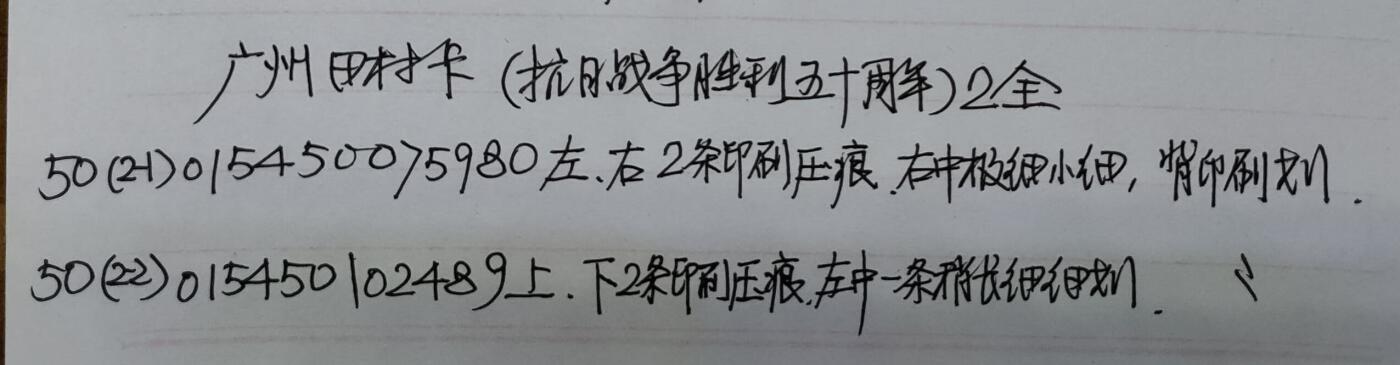 广州田村卡(抗日战争胜利五十周年)2全
50(21)015450075980左、右2条印刷压痕.右中极细小细,背印刷划.
50(22)015450102489上.下2条印刷压痕.左中一条稍长细细划.